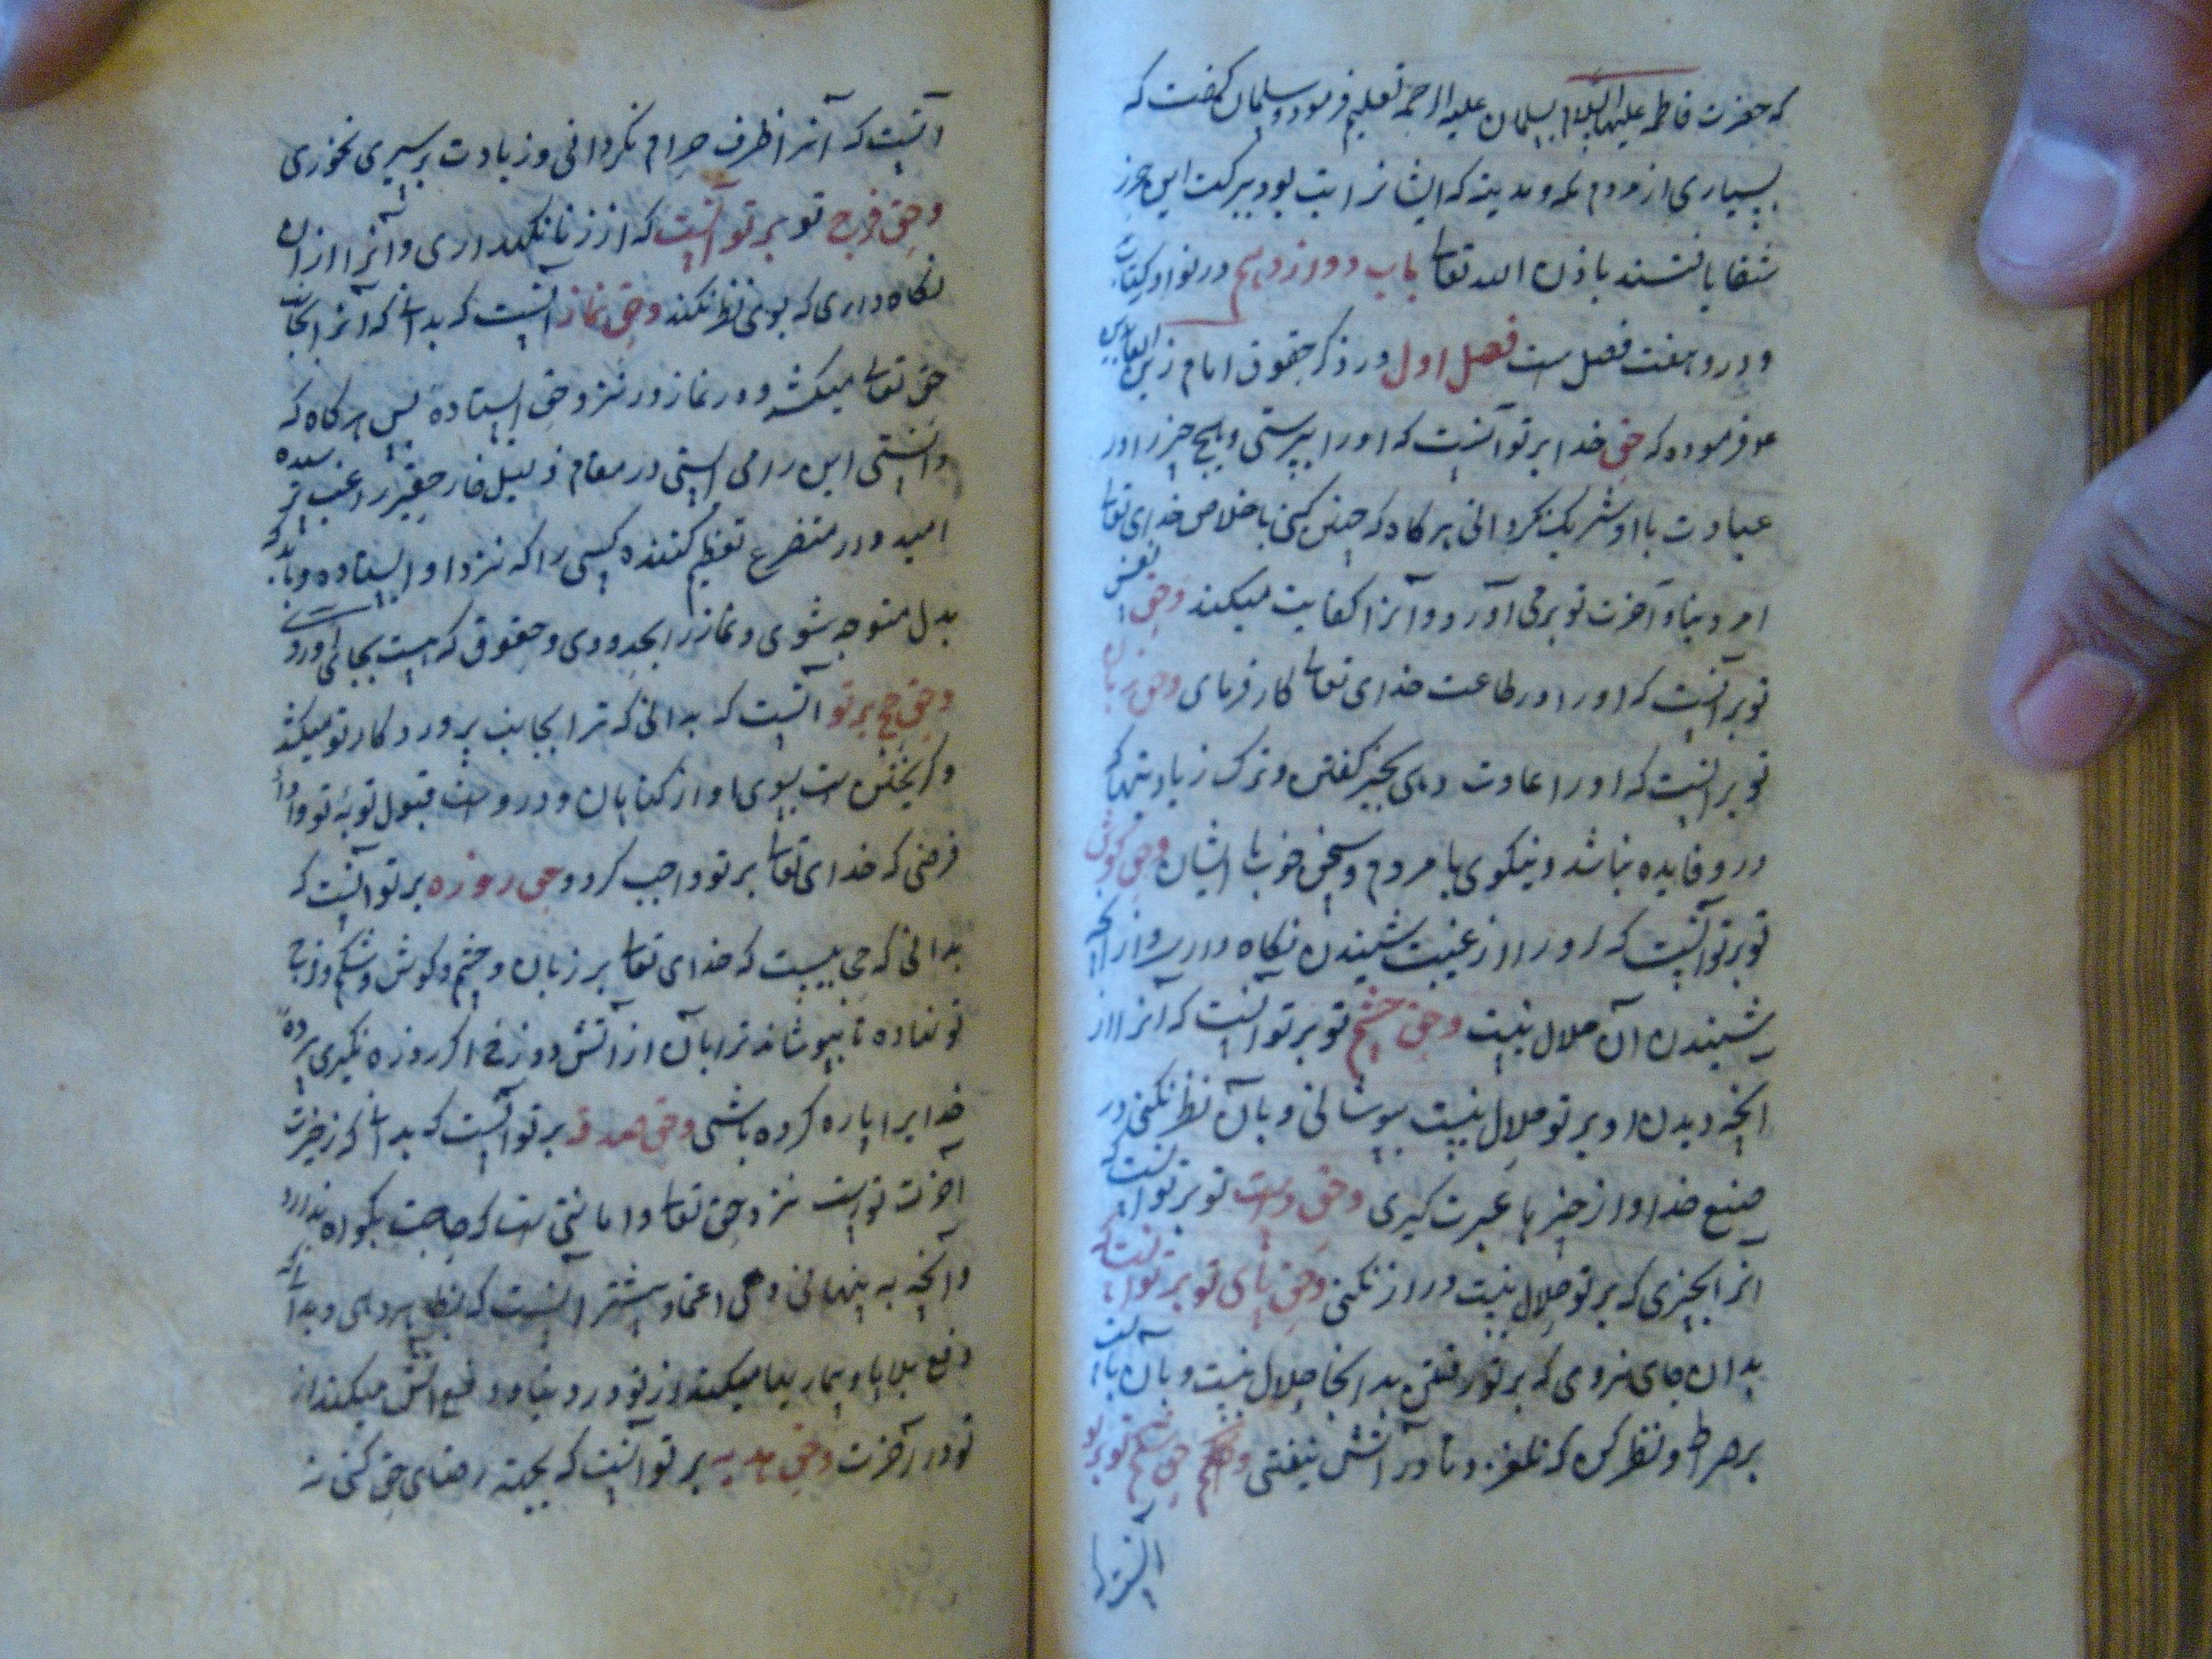 که حضرت فاطمه علیها السلام بسلمان علیه الرحمه تعلیم فرمود و سلمان کفت که
بسیاری از مردم مکه و مدینه که ایشانرا تب بود ببرکت این حرز
شفا یافتند باذن الله تعالی باب دوازدهم در نوادر
و درو هفت فصل ست فصل اول در ذکر حقوق امام زین العابدین
ع فرموده که حق خدا بر تو آنست که او را بپرستی و هیچ چیز را در
عبادت با او شریک نکردانی هرکاه که چنین کنی باخلاص خدای تعالی
امر دنیا و آخرت تو برمی آورد و آنرا کفایت میکند وحق نفس
تو بر آنست که او را در طاعت خدای تعالی کار فرمای وحق زبان
تو بر آنست که او را عادت دهی بخیر کفتن و ترک زیادتیها که
درو فایده نباشد و نیکوی با مردم و سخن خوب با ایشان وحق کوش
تو بر تو آنست که او را از غیبت شنیدن نکاه داری و از آنچه
شنیدن آن حلال نیست وحق چشم تو بر تو آنست که آنرا از
آنچه دیدن او بر تو حلال نیست بپوشانی و بآن نظر نکنی در
صنع خدا و از چیزها عبرت کیری وحق دست تو بر تو آنست که
آنرا بچیزی که بر تو حلال نیست دراز نکنی وحق پای تو بر تو آنست که
بدان جای نروی که بر تو رفتن بدانجا حلال نیست و بآن
بر صراط و نظر کن که نلغزد و تا در آتش نیفتی وحق شکم تو بر تو
آنست
آنست که آنرا ظرف حرام نکردانی و زیادت بر سیری نخوری
وحق فرج تو بر تو آنست که از زنا نکهداری و آنرا از آن
نکاه داری که بوی نظر نکند وحق نماز آنست که بدانی که آنرا بجانب
حق تعالی میکشد و در نماز در نزد حق ایستاده پس هرکاه که
دانستی این را می ایستی در مقام ذلیل خار حقیر راغب ترسنده
امیدوار متضرع تعظیم کننده کسی را که نزد او ایستاده و باید که
بدل متوجه شوی و نماز را بحدودی و حقوق که هست بجای آوردی
وحق حج بر تو آنست که بدانی که ترا بجانب پروردکار تو میکشد
و کریختن ست بسوی او از کناهان و دروست قبول توبهٔ تو و اداء
فرضی که خدای تعالی بر تو واجب کرد وحق روزه بر تو آنست که
بدانی که حجابیست که خدای تعالی بر زبان و چشم و کوش و شکم و فرج
تو نهاده تا بپوشاند ترا بآن از آتش دوزخ اکر روزه نکیری پرده
خدایرا پاره کرده باشی وحق صدقه بر تو آنست که بدانی که ذخیره
آخرت تو است نزد حق تعالی و امانتی ست که حاجت بکواه ندارد
و آنچه به پنهانی دهی اعتماد بیشتر آنست که بظاهر دهی و بدانکه
دفع بلاها و بیماریها میکند از تو در دنیا و دفع آتش میکند از
تو در آخرت وحق هدیه بر تو آنست که بجهت رضای حق کنی نه